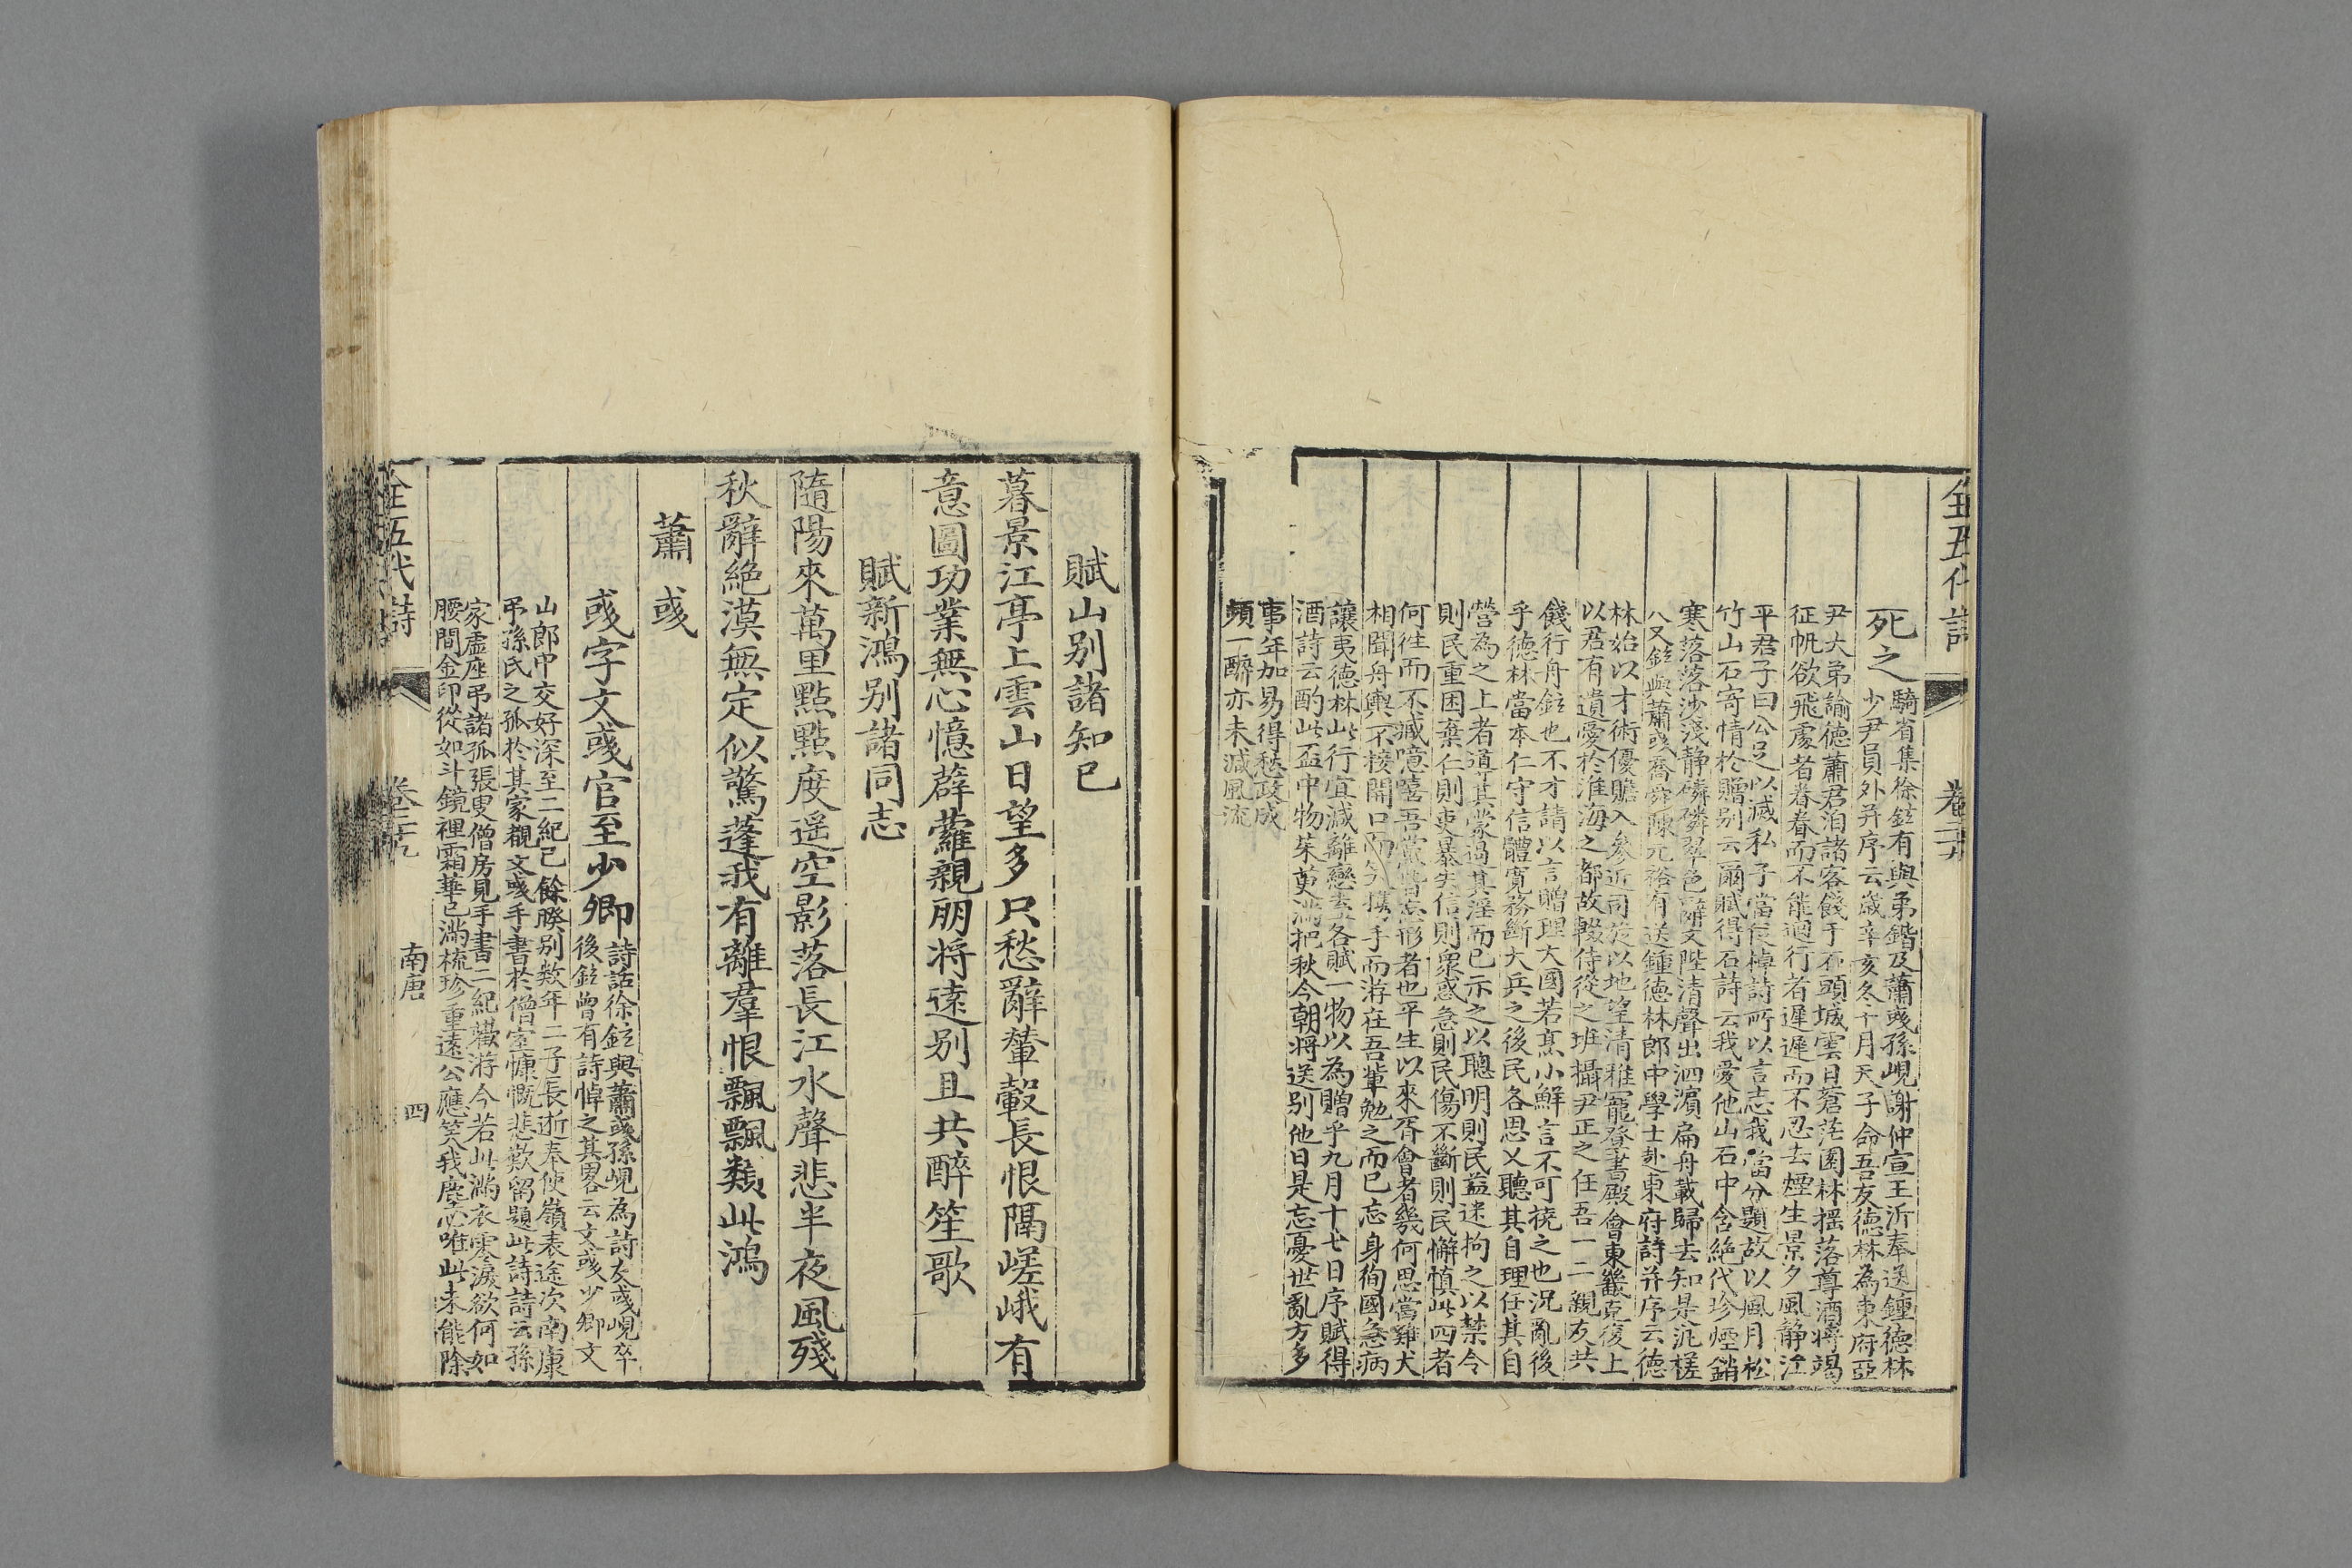 全五代詩
卷二十九
死之
騎省集徐鉉有與弟鍇及蕭彧孫峴謝仲宣王沂奉送鍾德林
少尹員外并序云歲辛亥冬十月天子命吾友德林為東府亞
尹大弟諭德蕭君洎諸客餞于石頭城雲日蒼茫園林摇落尊酒將竭
征帆欲飛處者眷眷而不能迴行者遲遲而不忍去煙生景夕風静江
平君子曰公足以滅私子當促棹詩所以言志我當分題故以風月松
竹山石寄情於贈别云爾賦得石詩云我愛他山石中含絶代珍煙銷
寒落落沙淺静磷磷翠色辭文陛清聲出泗濵扁舟載歸去知是泛槎
人又鉉與蕭彧喬舜陳元裕有送鍾德林郎中學士赴東府詩并序云德
林始以才術優贍入參近司從以地望清稚寵登書殿會東畿克復上
以君有遺愛於淮海之都故輟侍從之班攝尹正之任吾一二親友共
餞行舟鉉也不才請以言贈理大國若烹小鮮言不可撓之也況亂後
乎德林當本仁守信體寬務斷大兵之後民各思乂聽其自理任其自
營為之上者導其蒙遏其淫而已示之以聰明則民益迷拘之以禁令
則民重困棄仁則吏暴失信則衆惑急則民傷不斷則民懈慎此四者
何徃而不臧噫嘻吾黨皆忘形者也平生以來胥會者幾何思當雞犬
相聞舟輿不接開口而笑攜手而游在吾輩勉之而已忘身徇國急病
讓夷德林此行宜減離戀去各賦一物以為贈乎九月十七日序賦得
酒詩云酌此盃中物茱萸滿把秋今朝將送别他日是忘憂世亂方多
事年加易得愁政成
頻一醉亦未減風流
賦山别諸知己
暮景江亭上雲山日望多只愁辭輦轂長恨隔嵯峨有
意圖功業無心憶薜蘿親朋將遠别且共醉笙歌
賦新鴻别諸同志
隨陽來萬里點點度遥空影落長江水聲悲半夜風殘
秋辭絶漠無定似驚蓬我有離羣恨飄飄類此鴻
蕭彧
彧字文彧官至少卿
詩話徐鉉與蕭彧孫峴為詩友彧峴卒
後鉉曾有詩悼之其畧云文彧少卿文
山郎中交好深至二紀已餘暌别數年二子長逝奉使嶺表途次南康
弔孫氏之孤於其家覩文彧手書於僧室慷慨悲歎留題此詩詩云孫
家虛座弔諸孤張叟僧房見手書二紀歡游今若此滿衣零淚欲何如
腰間金印從如斗鏡裡霜華已滿梳珍重遠公應笑我塵心唯此未能除
全五代詩
卷二十九
南唐
四